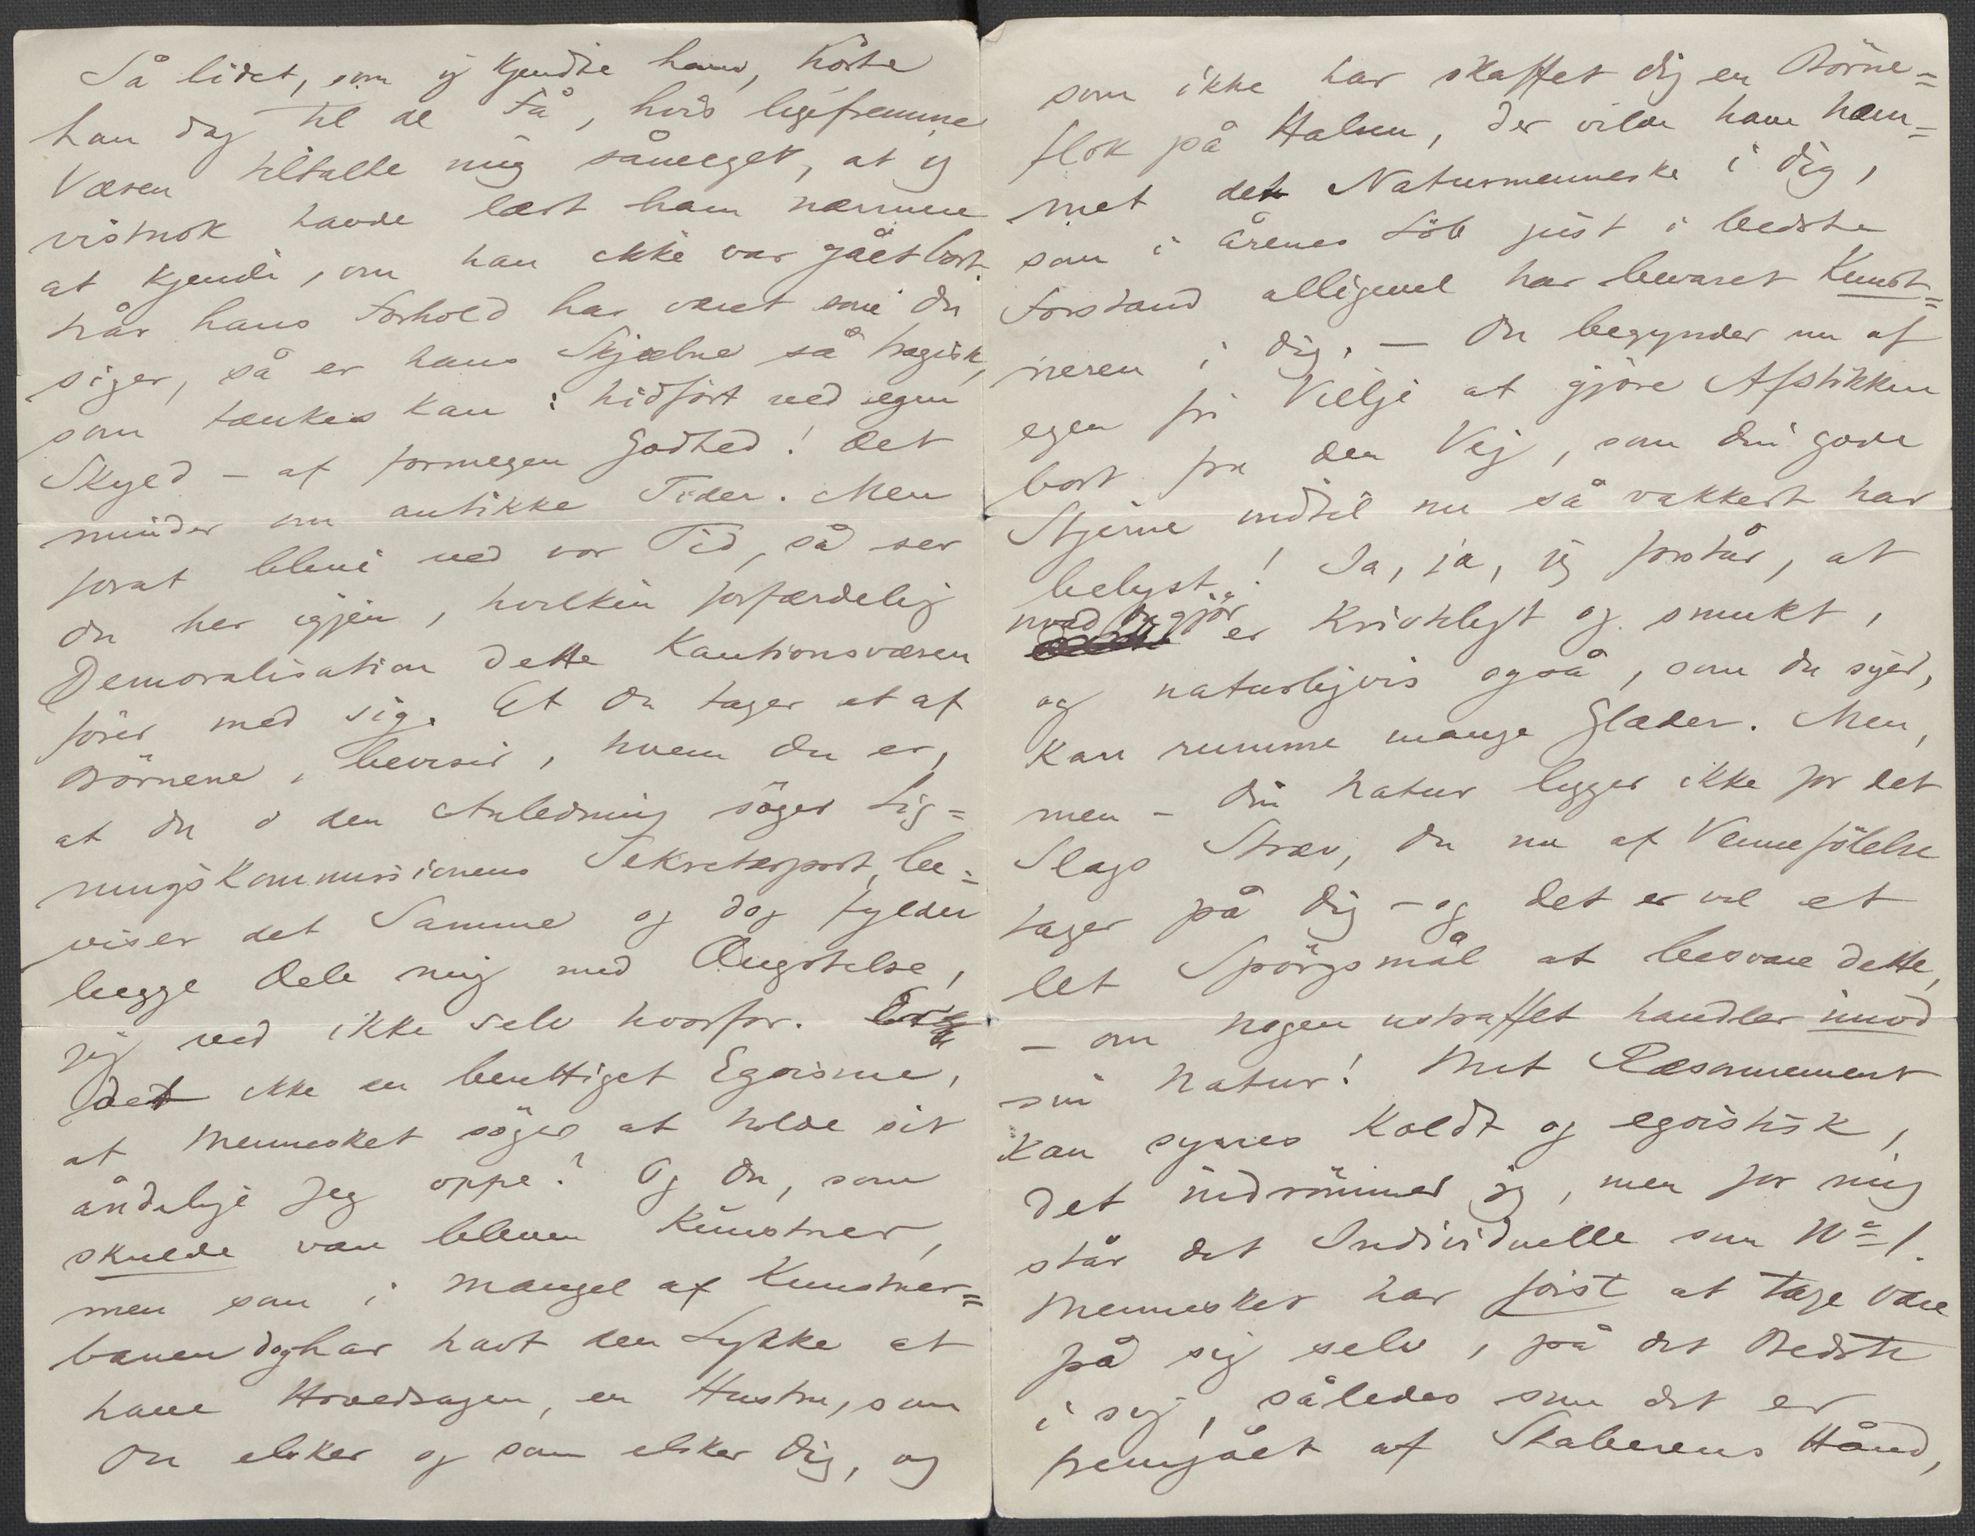 Så lidet, som jeg kjendte ham, hörte
han dog til de Få, hvis ligefremme
Væsen tiltalte mig såmeget, at jeg
vistnok havde lært ham nærmere
at kjende, om han ikke var gået bort.
Når hans Forhold har været som Du
siger, så er hans Skjæbne så tragisk,
som tænkes kan: hidfört ved egen
Skyld – af formegen Godhed! Det
minder om antikke Tider. Men
forat blive ved vor Tid, så ser
Du her igjen, hvilken forfærdelig
Demoralisation dette Kautionsvæsen
förer med sig. At Du tager et af
Börnene, beviser, hvem Du er,
at Du i den Anledning söger Lig=
ningskommissionens Sekretærpost, be=
viser det Samme og dog fylder
begge Dele mig med Ængstelse,
jeg ved ikke selv hvorfor. Er
det ikke en berettiget Egoisme,
at Mennesket söger at holde sit
åndelige Jeg oppe? Og Du, som
skulde van bleven Kunstner,
men som i Mangel af Kunstner=
banen dog har havt den Lykke at
have Hovedsagen, en Hustru, som
Du elsker og som elsker Dig, og
som ikke har skaffet Dig en Börne=
flok på Halsen, der vilde have hæm=
met det Naturmenneske i Dig,
som i Årenes Löb just i bedste
Forstand alligevel har bevaret Kunst=
neren i Dig. – Du begynder nu af
egen fri Vilje at gjöre Afstikkere
bort fra den Vej, som Din gode
Stjerne indtil nu så vakkert har
belyst! Ja, ja, jeg forstår, at
hvad Du gjör er kristeligt og smukt,
og naturligvis også, som Du siger,
kan rumme mange Glæder. Men,
men – Din Natur ligger ikke for det
Slags Stræv, Du nu af Vennefölelse
tager på Dig – og det er vel et
let Spörgsmål at besvare dette,
– om Nogen ustraffet handler imod
sin Natur! Mit Ræsonnement
kan synes koldt og egoistisk,
det indrömmer jeg, men for mig
står det Individuelle som No 1.
Mennesket har först at tage vare
på sig selv, på det Bedste
i sig, således som det er
fremgået af Skaberens Hånd,